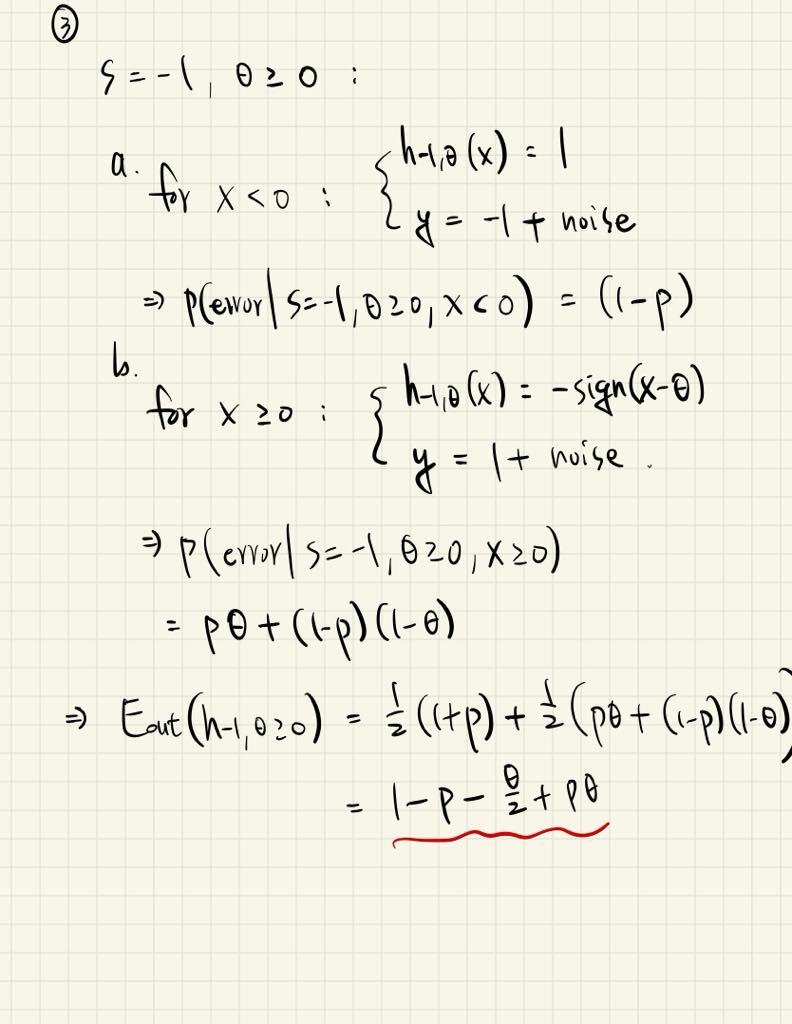 ③
s = -1, θ ≥ 0 :
a.
for x < 0 : { h-1,θ(x) = 1
y = -1 + noise
⇒ p(error | s = -1, θ ≥ 0, x < 0) = (1-p)
b.
for x ≥ 0 : { h-1,θ(x) = -sign(x-θ)
y = 1 + noise .
⇒ p(error | s = -1, θ ≥ 0, x ≥ 0)
= pθ + (1-p)(1-θ)
⇒ Eout(h-1, θ ≥ 0) = 1/2 (1+p) + 1/2 (pθ + (1-p)(1-θ))
= 1 - p - θ/2 + pθ